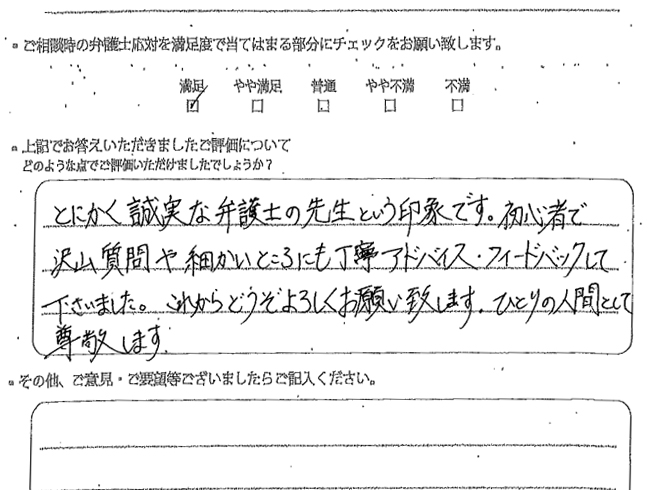 ご相談時の弁護士応対を満足度で当てはまる部分にチェックをお願い致します。
満足 やや満足 普通 やや不満 不満
☑ □ □ □ □
上記でお答えいただきましたご評価について
どのような点でご評価いただけましたでしょうか？
とにかく誠実な弁護士の先生という印象です。初心者で
沢山質問や細かいところにも丁寧アドバイス・フィードバックして
下さいました。これからどうぞよろしくお願い致します。ひとりの人間として
尊敬します。
その他、ご意見・ご要望等ございましたらご記入ください。